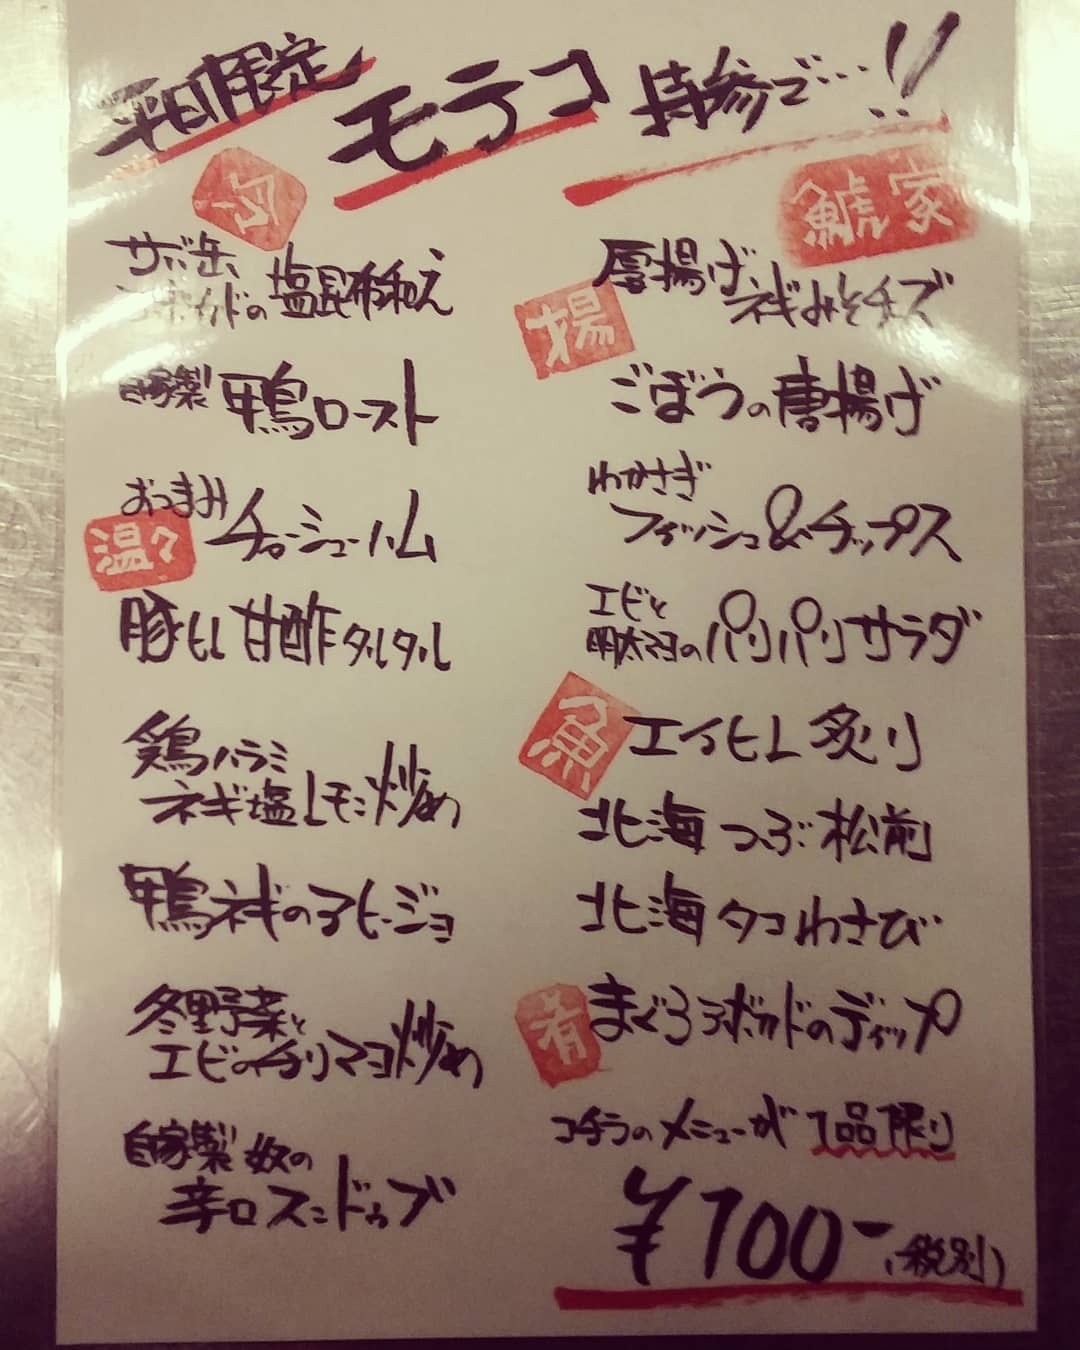 平日限定 モテコ 持参で…!!
冷
サバ缶、アボカドの 塩昆布和え
自家製 鴨ロースト
おつまみ チャーシューハム
温々
豚ヒレ 甘酢タルタル
鶏ハラミ
ネギ塩レモン炒め
鴨ネギのアヒージョ
冬野菜と
エビのチリマヨ炒め
自家製 奴の
辛口スンドゥブ
鯱家
厚揚げ、ネギみそチーズ
揚
ごぼうの唐揚げ
わかさぎ
フィッシュ&チップス
エビと
明太マヨのパリパリサラダ
魚
エイヒレ 炙り
北海つぶ松前
北海タコわさび
肴
まぐろアボカドのディップ
コチラのメニューが 1品限り
¥100-(税別)